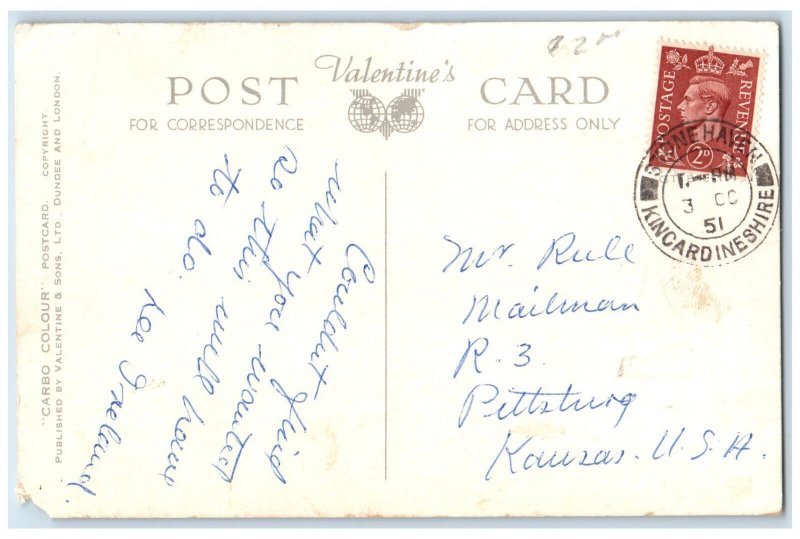 POST Valentine's CARD
FOR CORRESPONDENCE FOR ADDRESS ONLY
"CARBO COLOUR" POSTCARD. COPYRIGHT
PUBLISHED BY VALENTINE & SONS, LTD. DUNDEE AND LONDON.
POSTAGE REVENUE
2D
STONEHAVEN
3 OC
51
KINCARDINESHIRE
Couldnt find
what you wanted
So this will have
to do.
Lee Ireland
Mr. Rule
Mailman
R. 3.
Pittsburg
Kansas. U.S.A.